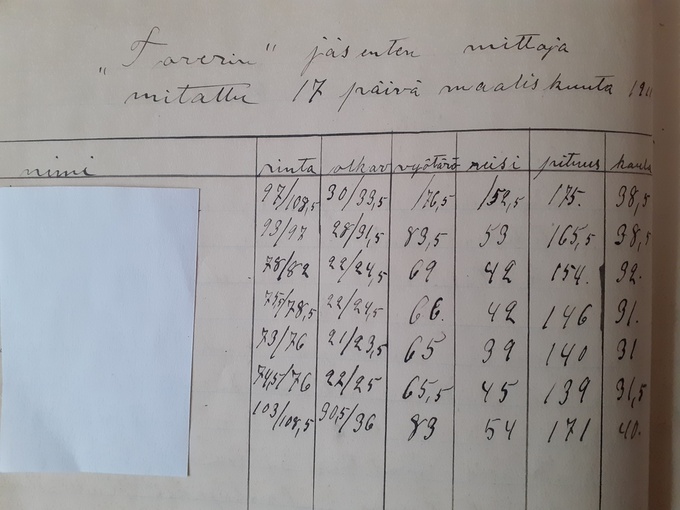 „Toverin“ jäsenten mittoja
mitattu 17 päivä maaliskuuta
nimi rinta olkav vyötärö reisi pituus kaula
97/108,5 30/33,5 76,5 52,5 175. 38,5
93/97 28/31,5 83,5 53 165,5 38,5
78/82 22/24,5 69 42 154. 32.
75/78,5 22/24,5 66. 42 146 31.
73/76 21/23,5 65 39 140 31
74,5/76 22/25 65,5 45 139 31,5
103/108,5 30,5/36 83 54 171 40.